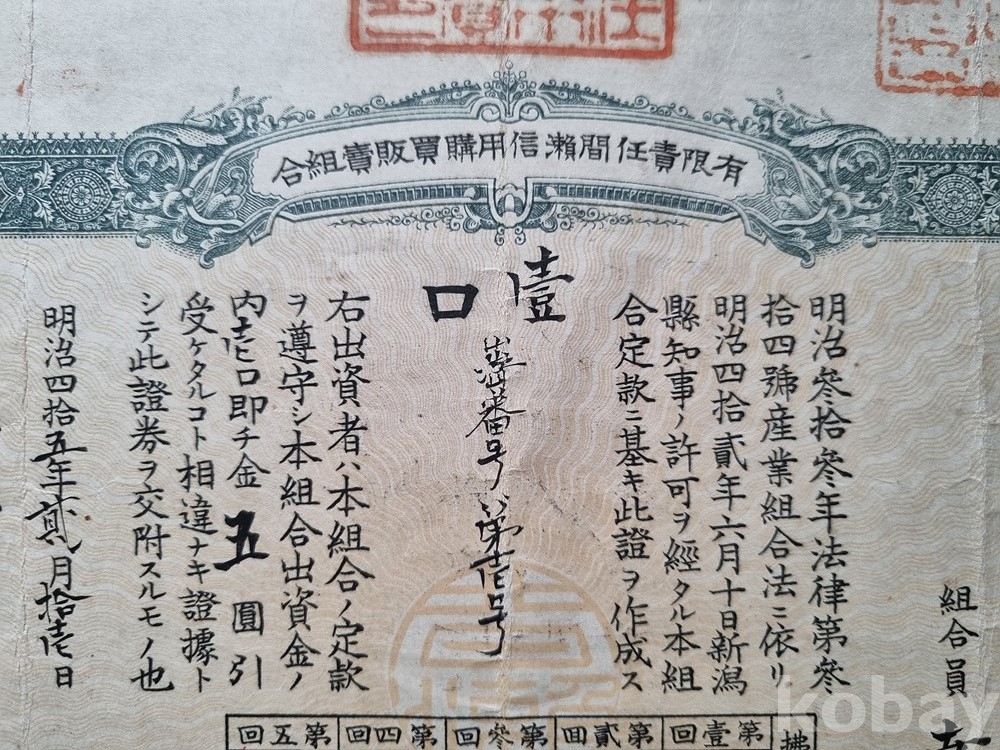 有限責任間瀬信用購買販賣組合
組合員
明治参拾参年法律第参
拾四號産業組合法ニ依リ
明治四拾貳年六月十日新潟
縣知事ノ許可ヲ經タル本組
合定款ニ基キ此證ヲ作成ス
壹口
番号第壱号
右出資者ハ本組合ノ定款
ヲ遵守シ本組合出資金ノ
内壱口即チ金五圓引
受ケタルコト相違ナキ證據ト
シテ此證券ヲ交附スルモノ也
明治四拾五年貮月拾壱日
第壹回
第貳回
第参回
第四回
第五回
kobay